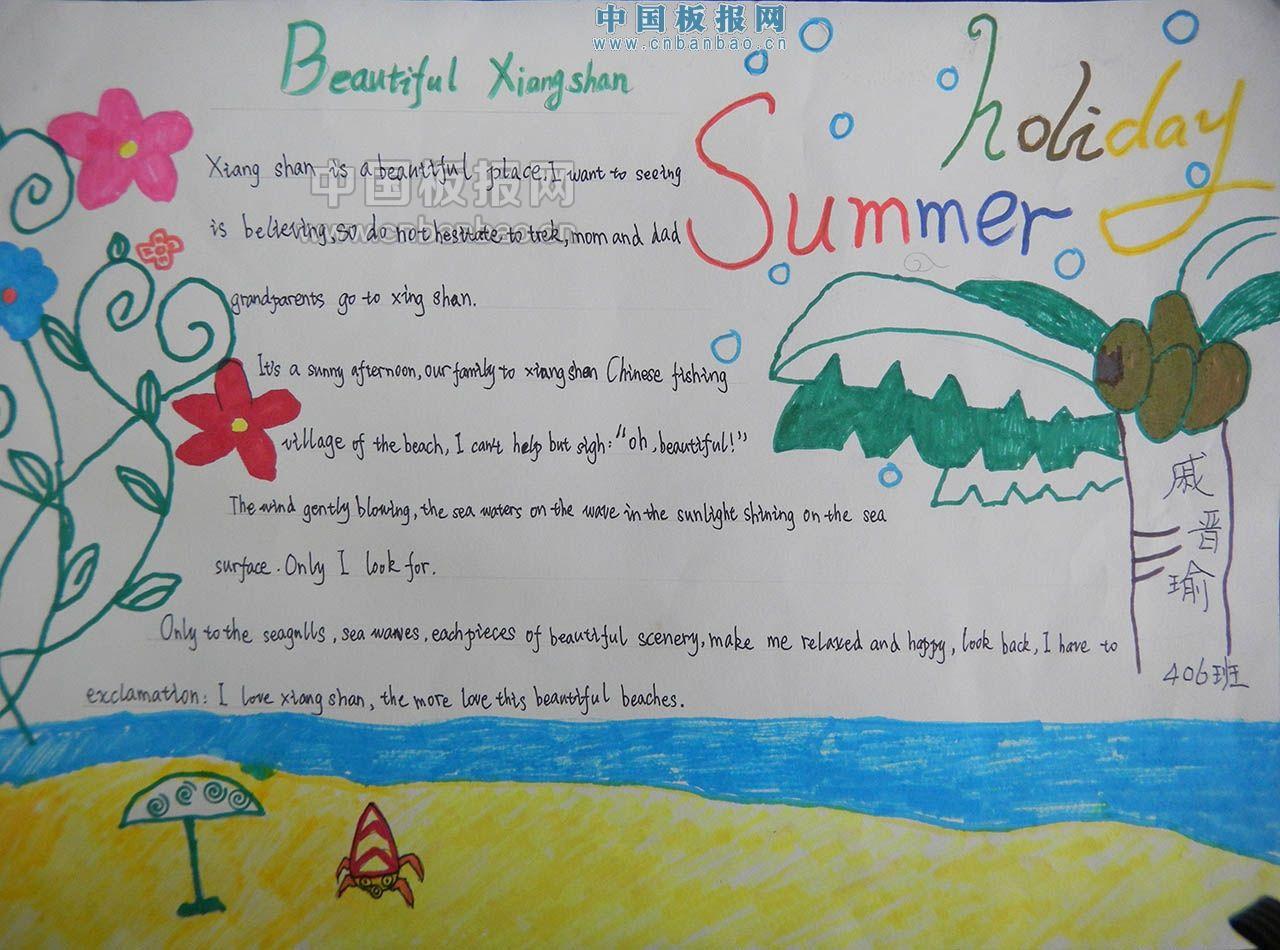 中国板报网
www.cnbanbao.cn
Beautiful Xiangshan
holiday
Summer
Xiang shan is a beautiful place. I want to seeing
is believing, so do not hesitate to trek, mom and dad
grandparents go to xing shan.
It's a sunny afternoon, our family to xiangshan Chinese fishing
village of the beach, I can't help but sigh: "oh, beautiful!"
The wind gently blowing, the sea waters on the wave in the sunlight shining on the sea
surface. Only I look for.
Only to the seagulls, sea waves, each pieces of beautiful scenery, make me relaxed and happy, look back, I have to
exclamation: I love xiangshan, the more love this beautiful beaches.
中国板报网
www.cnbanbao.cn
戚晋瑜
406班